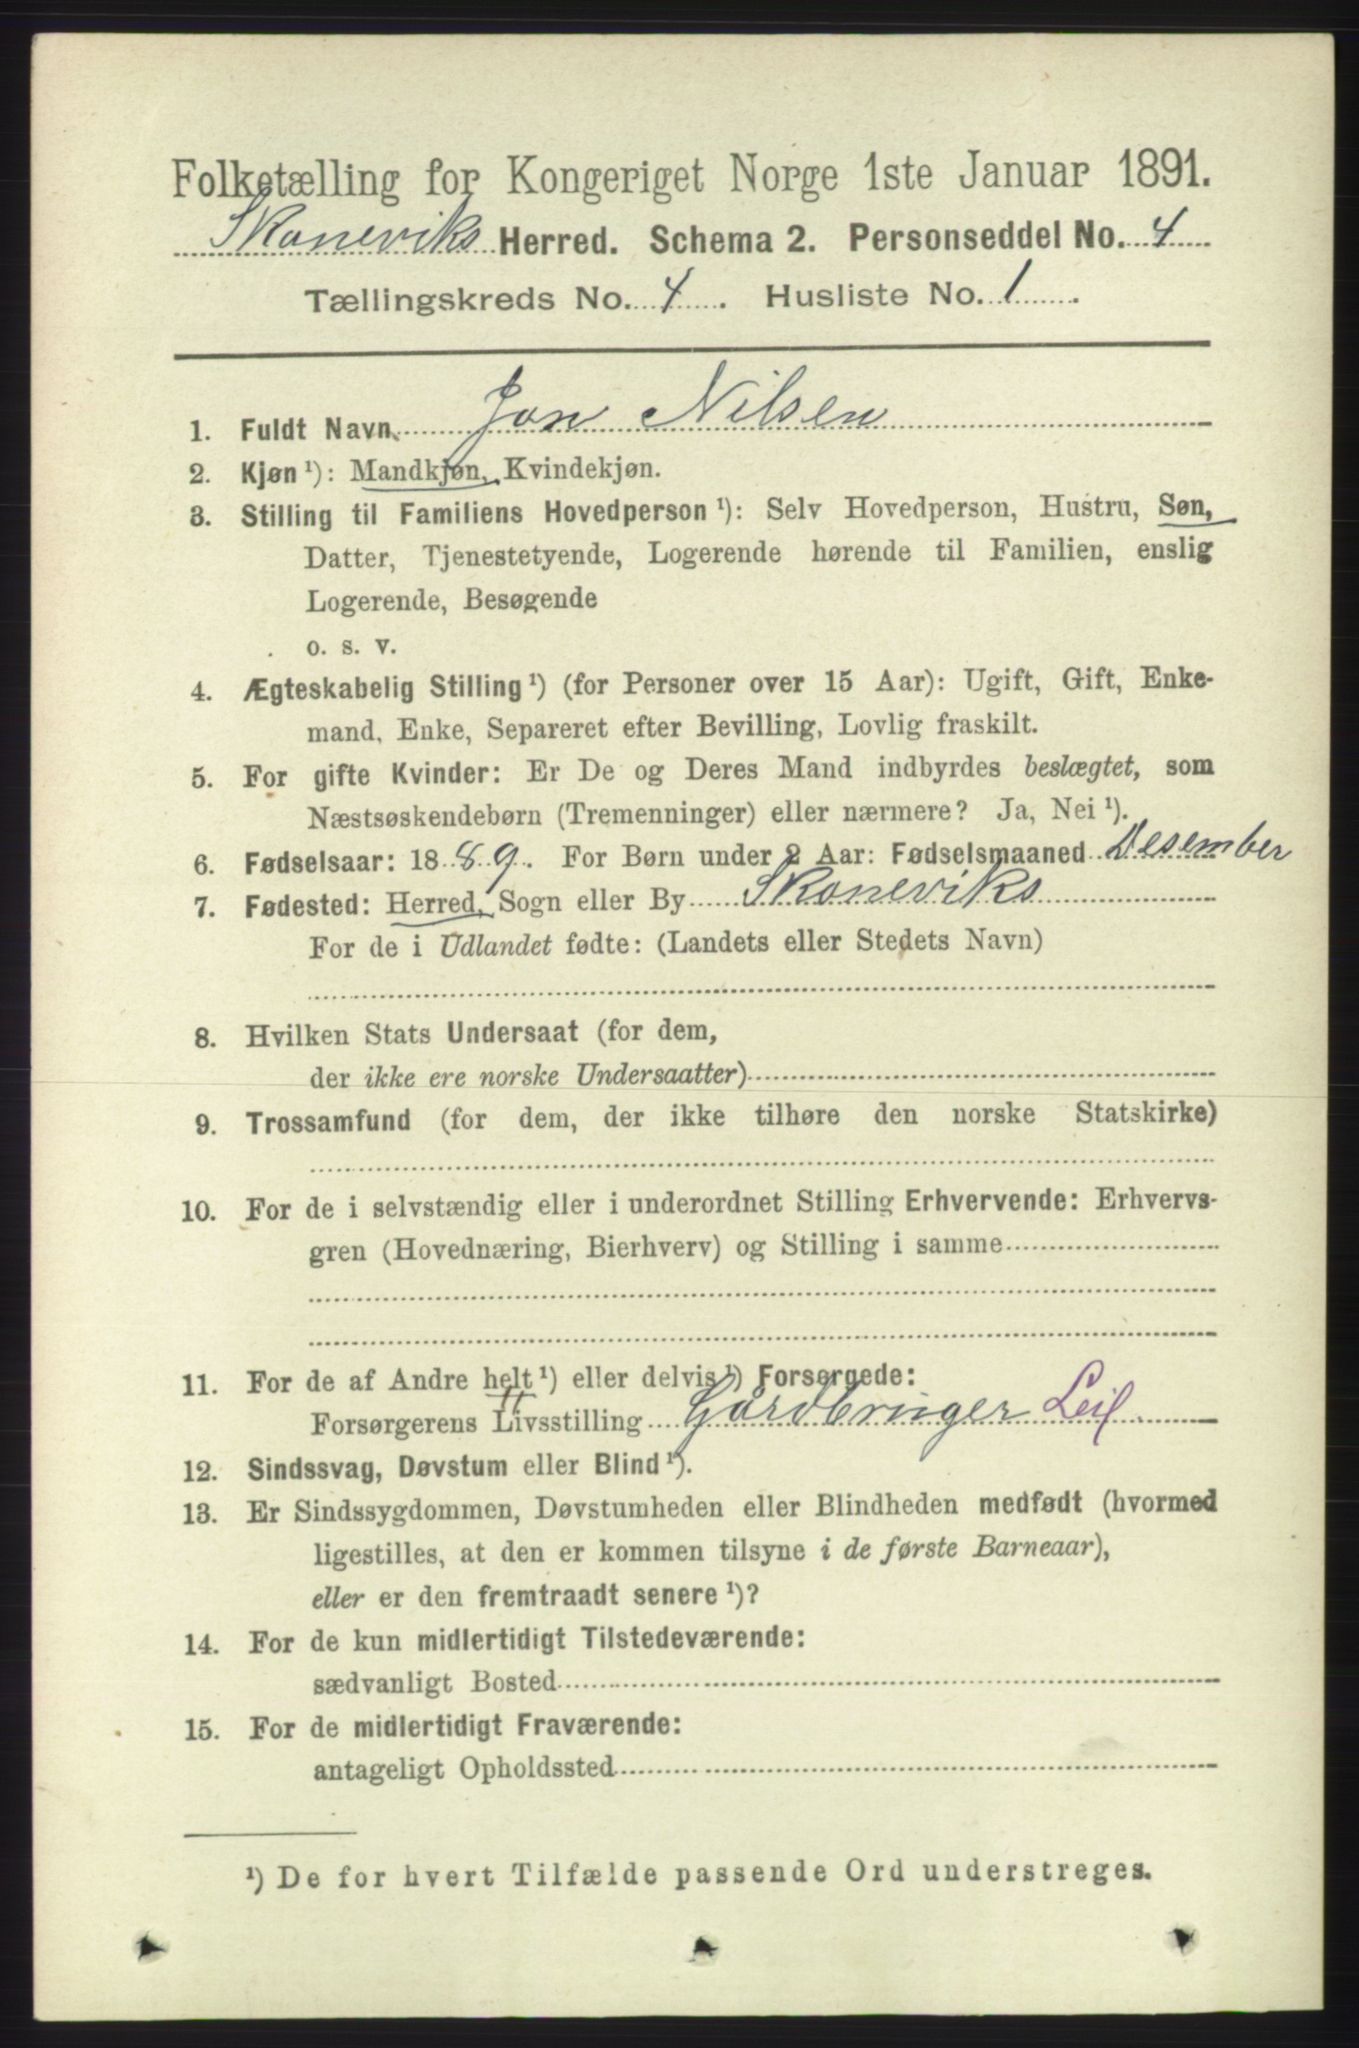 Folketælling for Kongeriget Norge 1ste Januar 1891.
Skoneviks Herred. Schema 2. Personseddel No. 4
Tællingskreds No. 4. Husliste No. 1.
1. Fuldt Navn Jon Nilsen
2. Kjøn ¹): Mandkjøn, Kvindekjøn.
3. Stilling til Familiens Hovedperson ¹): Selv Hovedperson, Hustru, Søn,
Datter, Tjenestetyende, Logerende hørende til Familien, enslig
Logerende, Besøgende
o. s. v.
4. Ægteskabelig Stilling ¹) (for Personer over 15 Aar): Ugift, Gift, Enke-
mand, Enke, Separeret efter Bevilling, Lovlig fraskilt.
5. For gifte Kvinder: Er De og Deres Mand indbyrdes beslægtet, som
Næstsøskendebørn (Tremenninger) eller nærmere? Ja, Nei ¹).
6. Fødselsaar: 1889. For Børn under 2 Aar: Fødselsmaaned Desember
7. Fødested: Herred, Sogn eller By Skoneviks
For de i Udlandet fødte: (Landets eller Stedets Navn)
8. Hvilken Stats Undersaat (for dem,
der ikke ere norske Undersaatter)
9. Trossamfund (for dem, der ikke tilhøre den norske Statskirke)
10. For de i selvstændig eller i underordnet Stilling Erhvervende: Erhvervs-
gren (Hovednæring, Bierhverv) og Stilling i samme
11. For de af Andre helt ¹) eller delvis ¹) Forsørgede:
Forsørgerens Livsstilling Gårdbruger Leil.
12. Sindssvag, Døvstum eller Blind ¹).
13. Er Sindssygdommen, Døvstumheden eller Blindheden medfødt (hvormed
ligestilles, at den er kommen tilsyne i de første Barneaar),
eller er den fremtraadt senere ¹)?
14. For de kun midlertidigt Tilstedeværende:
sædvanligt Bosted
15. For de midlertidigt Fraværende:
antageligt Opholdssted
¹) De for hvert Tilfælde passende Ord understreges.